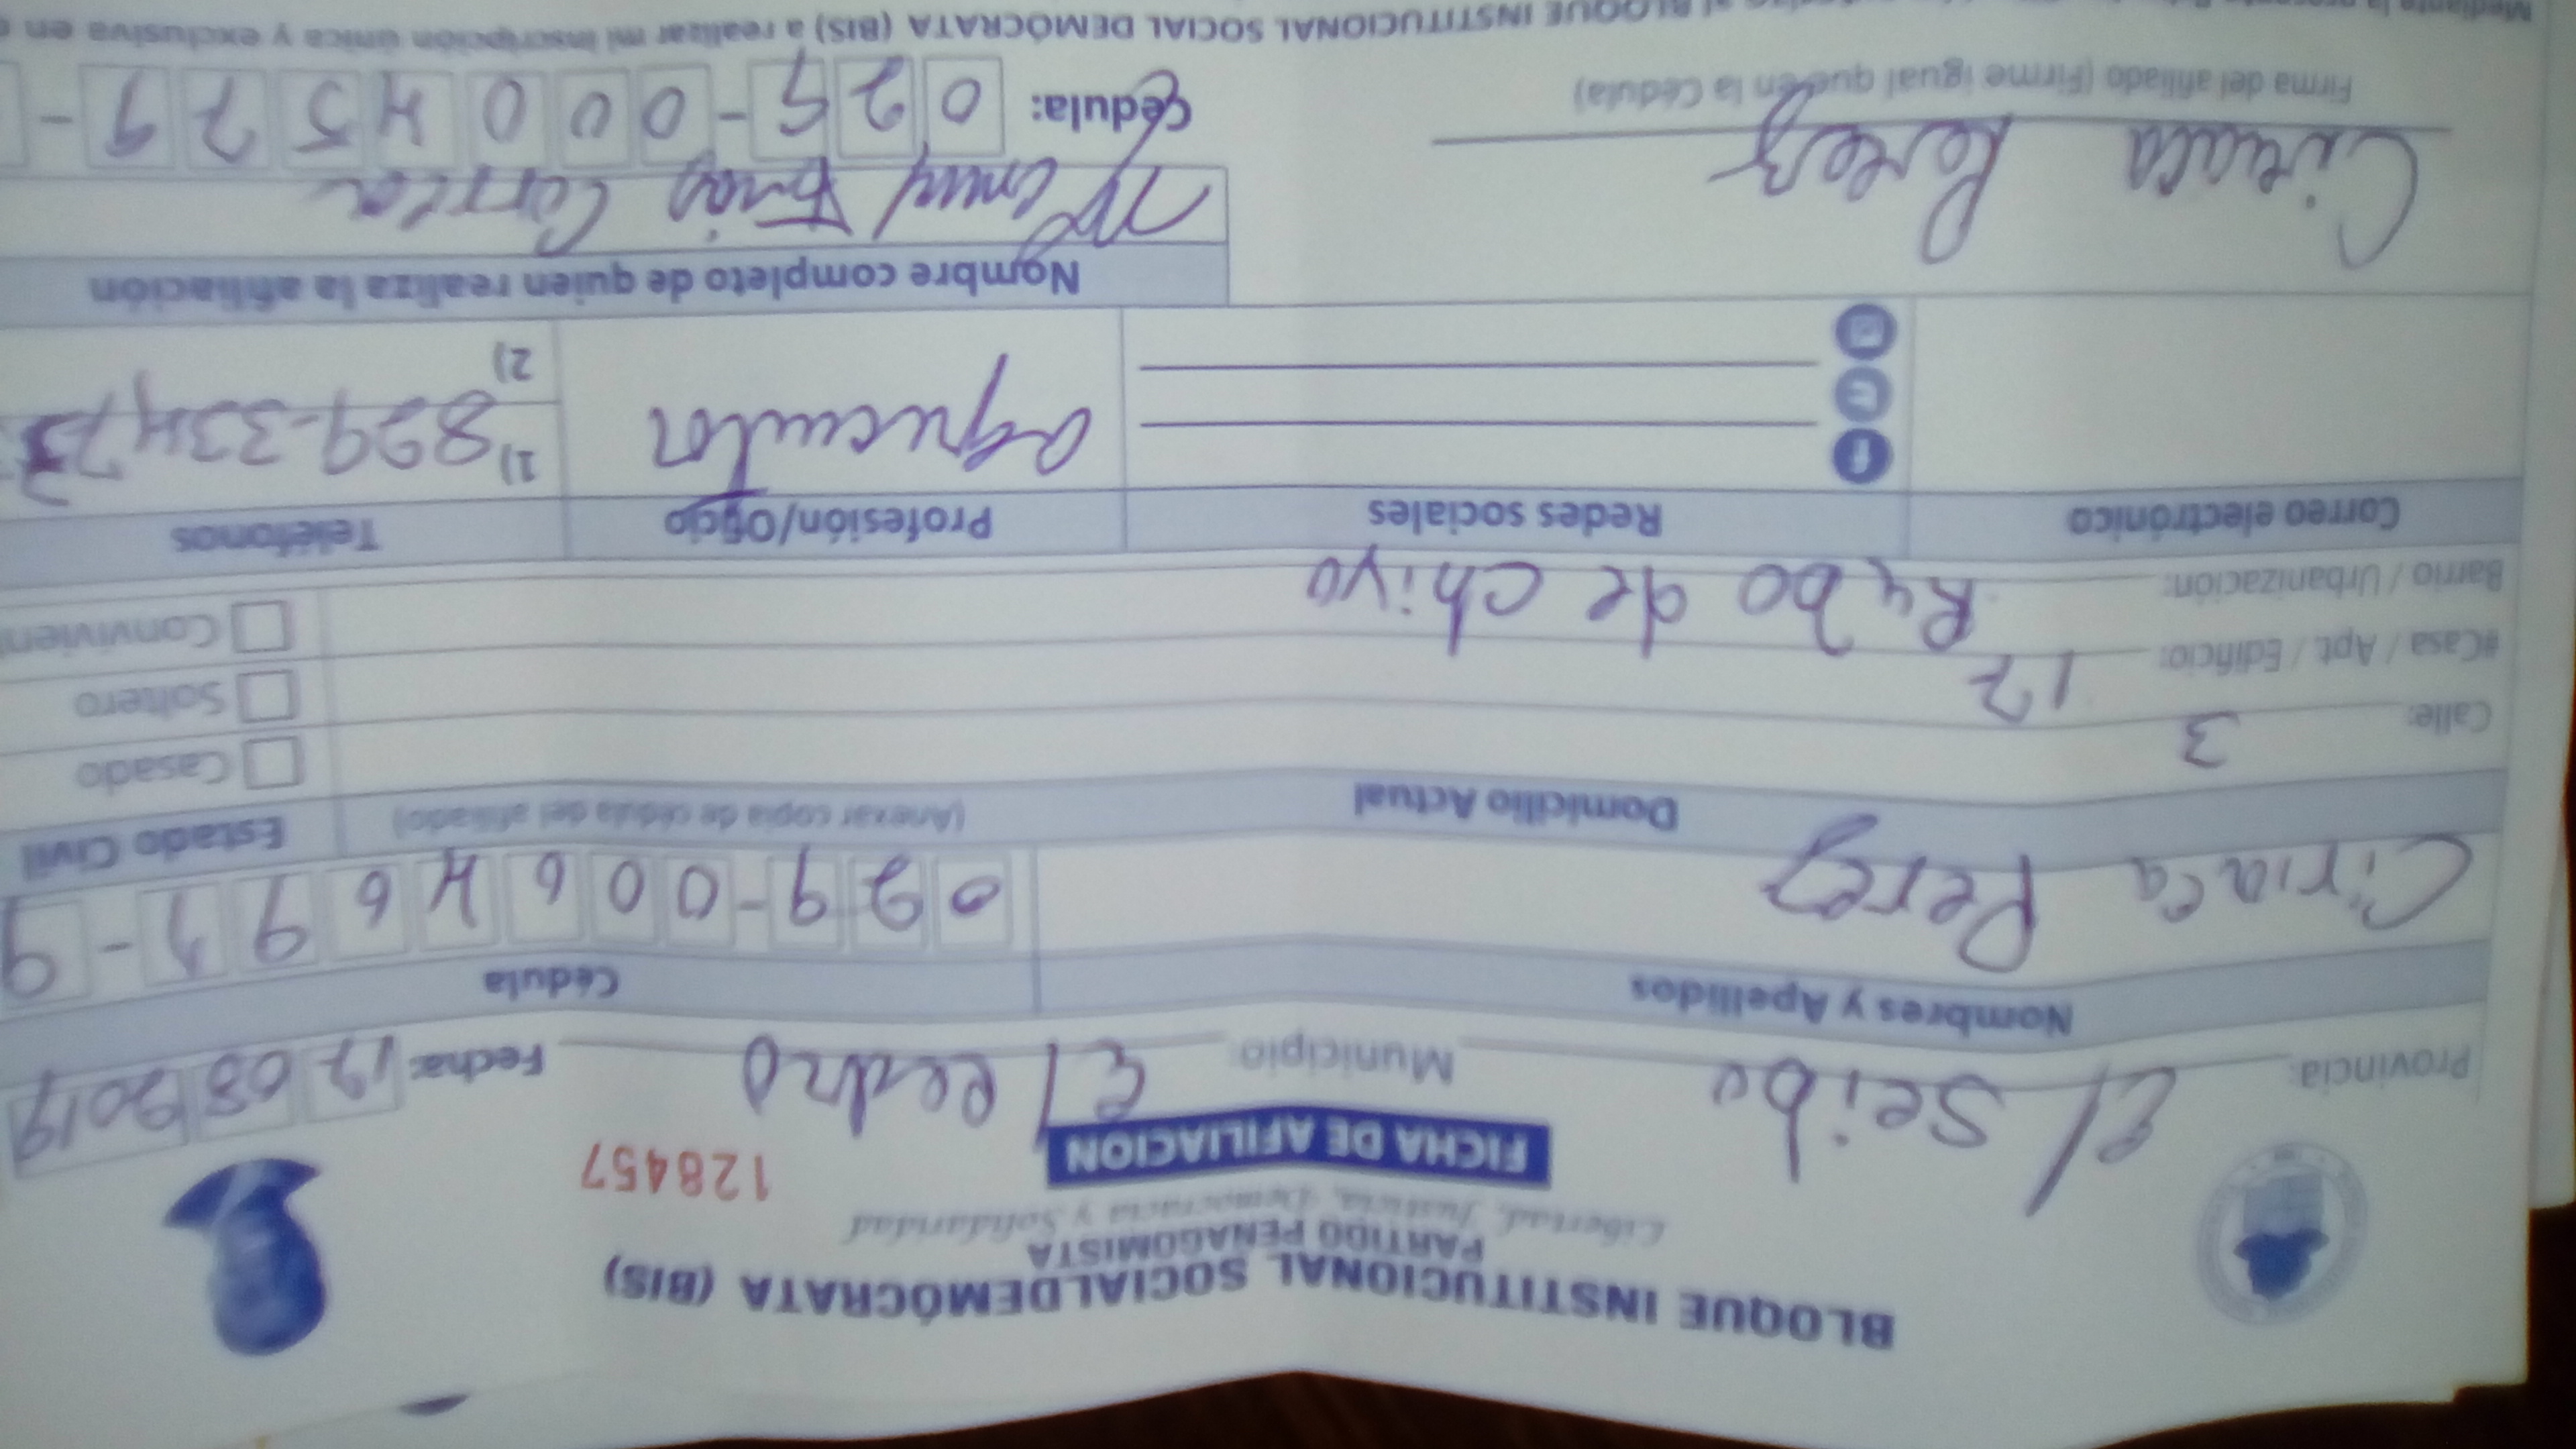 BLOQUE INSTITUCIONAL SOCIALDEMÓCRATA (BIS)
PARTIDO PENAGOMISTA
Libertad, Justicia, Democracia y Solidaridad
FICHA DE AFILIACION 128457
Provincia: El Seibo Municipio: El Pedro Fecha: 17 08 2019
Nombres y Apellidos Cédula
Ciriaca Perez 029-0006469
Domicilio Actual (Anexar copia de cédula del afiliado) Estado Civil
Calle: 3 Casado
#Casa / Apt. / Edificio: 17 Soltero
Barrio / Urbanización: Rabo de Chivo Convivien
Correo electrónico Redes sociales Profesión/Oficio Teléfonos
agricultor 1) 829-33
2)
Nombre completo de quien realiza la afiliación
Ciriaca Perez Correa
Firma del afiliado (Firme igual que en la Cédula) Cédula: 0
BLOQUE INSTITUCIONAL SOCIAL DEMÓCRATA (BIS) a realizar mi inscripción única y exclusiva en